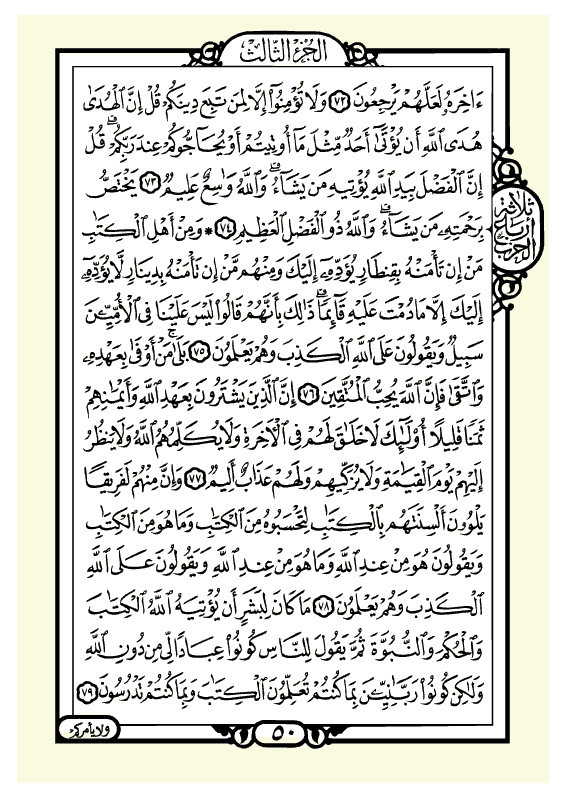 الجزء الثالث
ءَاخِرَهُۥ لَعَلَّهُمْ يَرْجِعُونَ ٧٢ وَلَا تُؤْمِنُوٓا۟ إِلَّا لِمَن تَبِعَ دِينَكُمْ قُلْ إِنَّ ٱلْهُدَىٰ
هُدَى ٱللَّهِ أَن يُؤْتَىٰٓ أَحَدٌ مِّثْلَ مَآ أُوتِيتُمْ أَوْ يُحَآجُّوكُمْ عِندَ رَبِّكُمْ ۗ قُلْ
إِنَّ ٱلْفَضْلَ بِيَدِ ٱللَّهِ يُؤْتِيهِ مَن يَشَآءُ ۗ وَٱللَّهُ وَٰسِعٌ عَلِيمٌ ٧٣ يَخْتَصُّ
بِرَحْمَتِهِۦ مَن يَشَآءُ ۗ وَٱللَّهُ ذُو ٱلْفَضْلِ ٱلْعَظِيمِ ٧٤ * وَمِنْ أَهْلِ ٱلْكِتَٰبِ
مَنْ إِن تَأْمَنْهُ بِقِنطَارٍ يُؤَدِّهِۦٓ إِلَيْكَ وَمِنْهُم مَّنْ إِن تَأْمَنْهُ بِدِينَارٍ لَّا يُؤَدِّهِۦٓ
إِلَيْكَ إِلَّا مَا دُمْتَ عَلَيْهِ قَآئِمًا ۗ ذَٰلِكَ بِأَنَّهُمْ قَالُوا۟ لَيْسَ عَلَيْنَا فِى ٱلْأُمِّيِّـۧنَ
سَبِيلٌ وَيَقُولُونَ عَلَى ٱللَّهِ ٱلْكَذِبَ وَهُمْ يَعْلَمُونَ ٧٥ بَلَىٰ ۚ مَنْ أَوْفَىٰ بِعَهْدِهِۦ
وَٱتَّقَىٰ فَإِنَّ ٱللَّهَ يُحِبُّ ٱلْمُتَّقِينَ ٧٦ إِنَّ ٱلَّذِينَ يَشْتَرُونَ بِعَهْدِ ٱللَّهِ وَأَيْمَٰنِهِمْ
ثَمَنًا قَلِيلًا أُو۟لَٰٓئِكَ لَا خَلَٰقَ لَهُمْ فِى ٱلْءَاخِرَةِ وَلَا يُكَلِّمُهُمُ ٱللَّهُ وَلَا يَنظُرُ
إِلَيْهِمْ يَوْمَ ٱلْقِيَٰمَةِ وَلَا يُزَكِّيهِمْ وَلَهُمْ عَذَابٌ أَلِيمٌ ٧٧ وَإِنَّ مِنْهُمْ لَفَرِيقًا
يَلْوُۥنَ أَلْسِنَتَهُم بِٱلْكِتَٰبِ لِتَحْسَبُوهُ مِنَ ٱلْكِتَٰبِ وَمَا هُوَ مِنَ ٱلْكِتَٰبِ
وَيَقُولُونَ هُوَ مِنْ عِندِ ٱللَّهِ وَمَا هُوَ مِنْ عِندِ ٱللَّهِ وَيَقُولُونَ عَلَى ٱللَّهِ
ٱلْكَذِبَ وَهُمْ يَعْلَمُونَ ٧٨ مَا كَانَ لِبَشَرٍ أَن يُؤْتِيَهُ ٱللَّهُ ٱلْكِتَٰبَ
وَٱلْحُكْمَ وَٱلنُّبُوَّةَ ثُمَّ يَقُولَ لِلنَّاسِ كُونُوا۟ عِبَادًا لِّى مِن دُونِ ٱللَّهِ
وَلَٰكِن كُونُوا۟ رَبَّٰنِيِّـۧنَ بِمَا كُنتُمْ تُعَلِّمُونَ ٱلْكِتَٰبَ وَبِمَا كُنتُمْ تَدْرُسُونَ ٧٩
ثلاثة
أرباع
الحزب
ولا يأمركم
٥٠